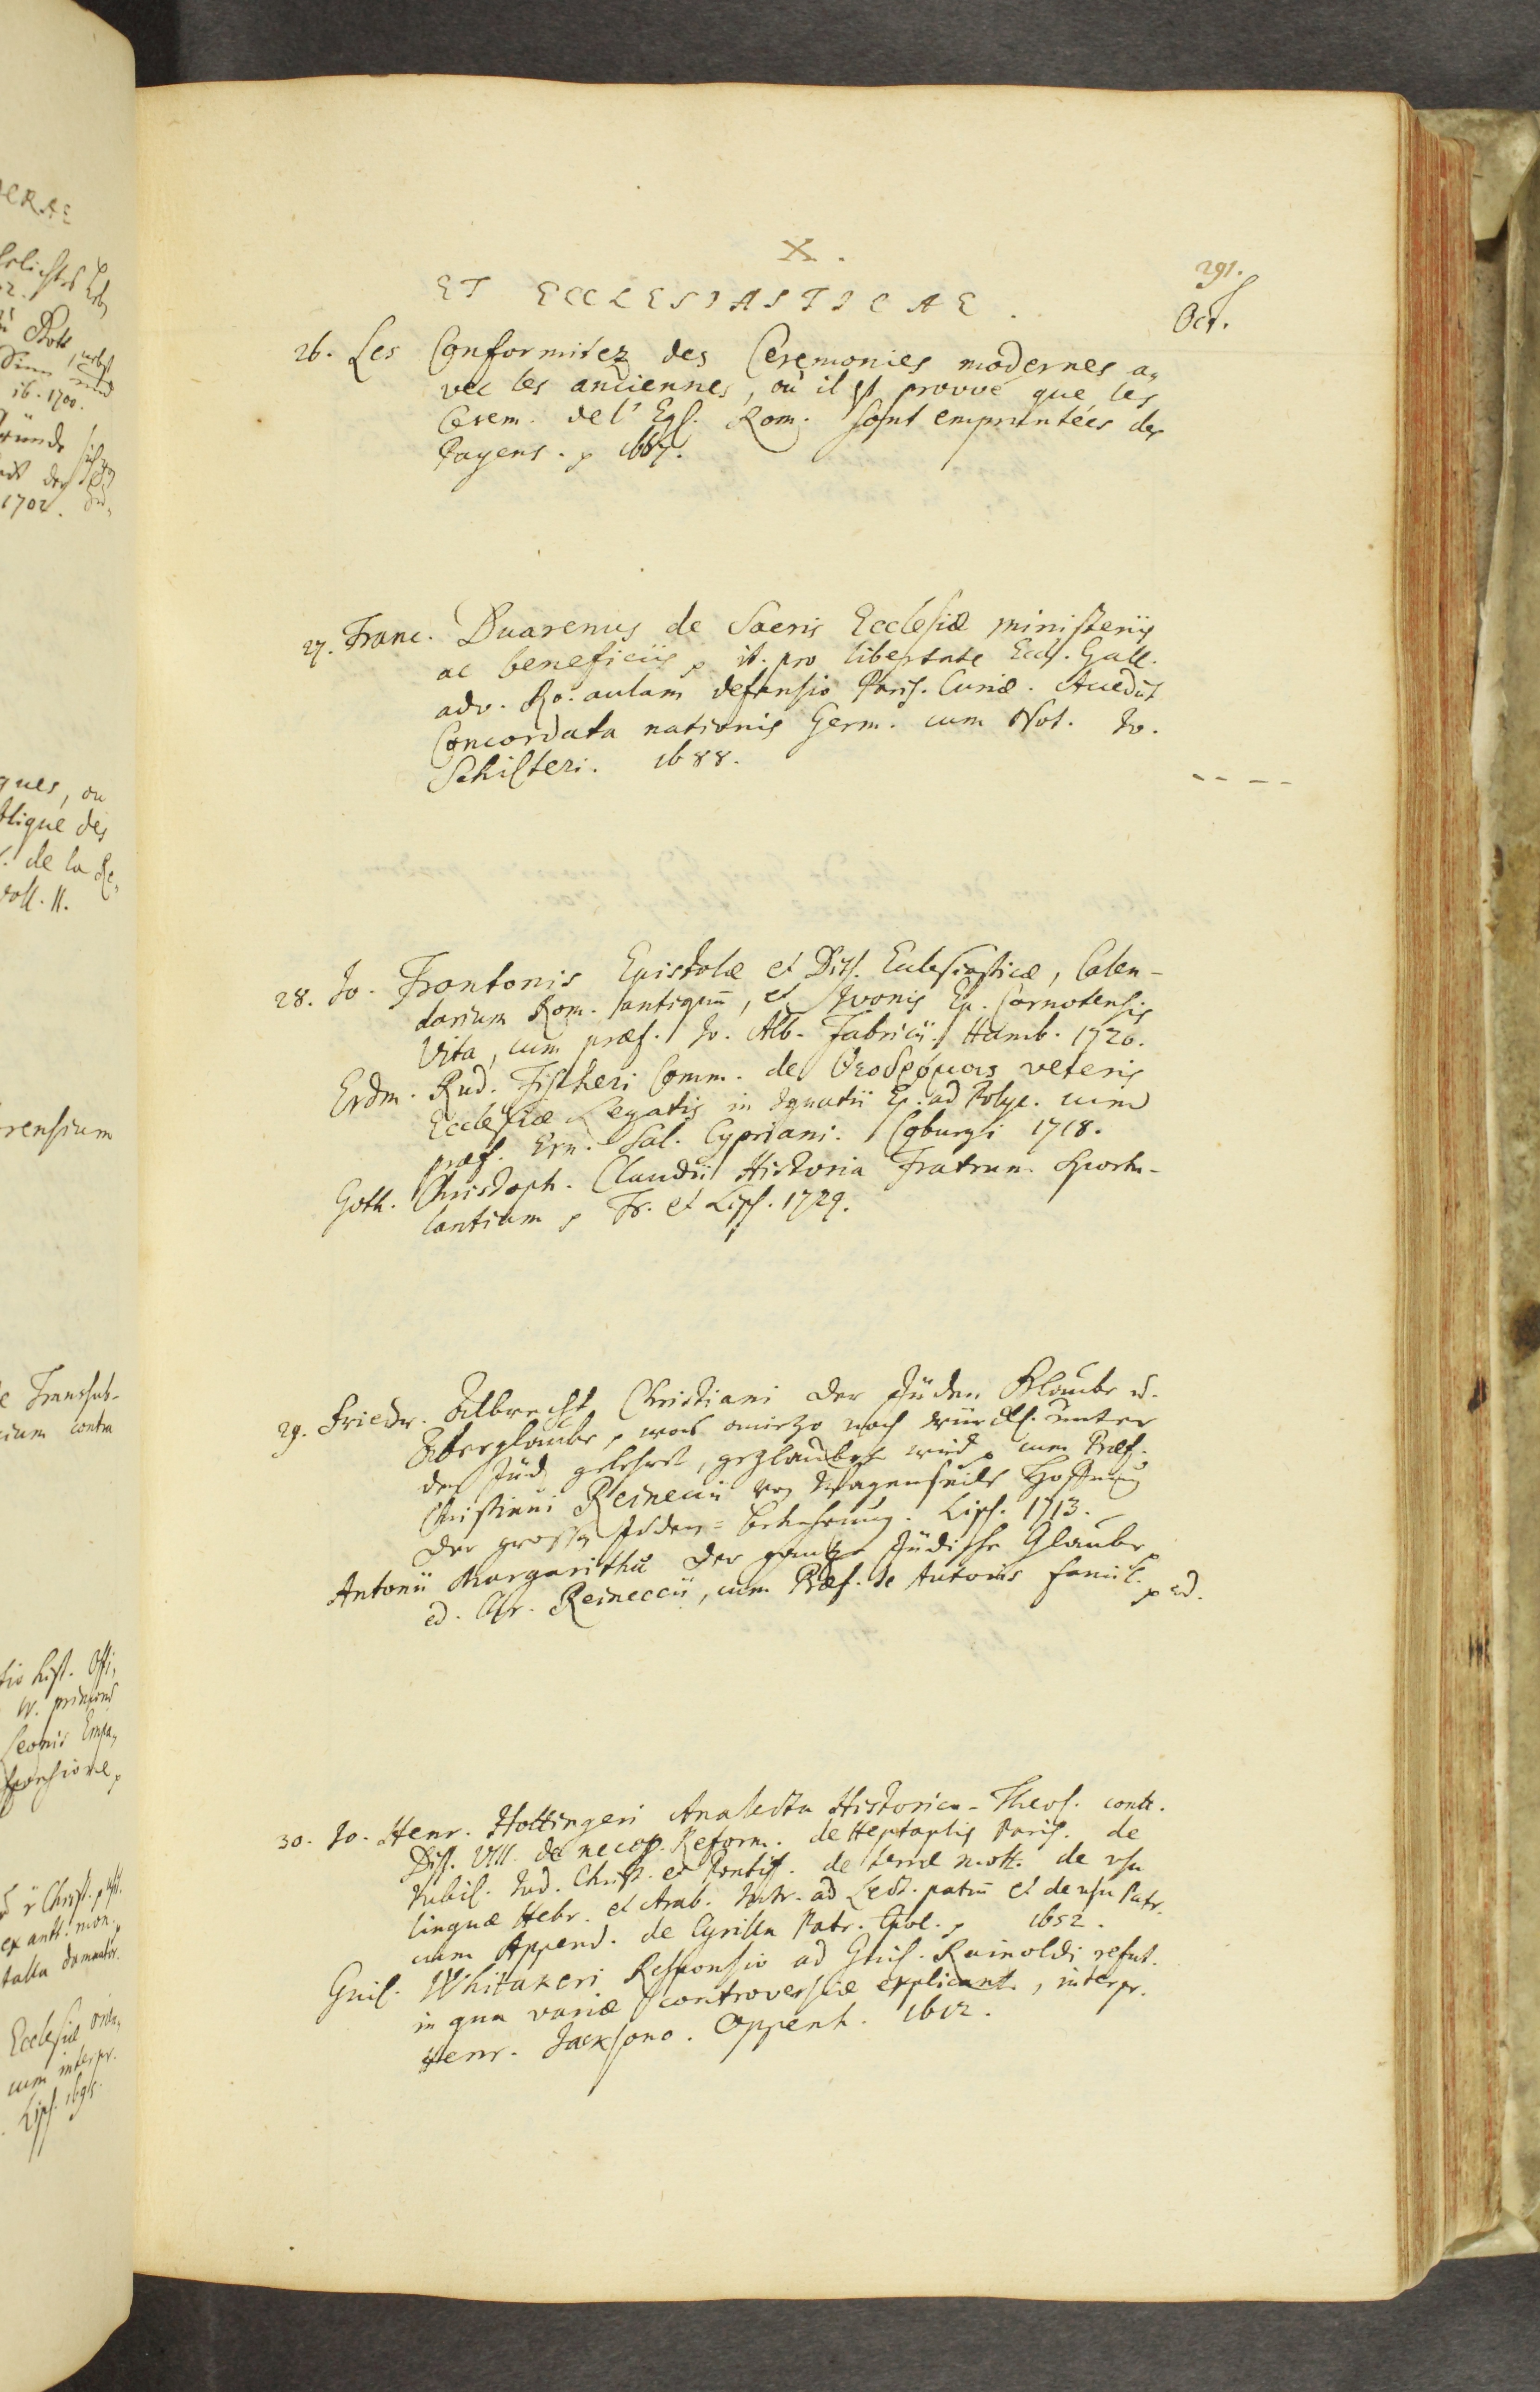 X.
291.
ET ECCLESIASTICAE.
Oct.
26. Les Conformitez des Ceremonies modernes a„
vec les anciennes, où il est prouvé que les
Cerem. de l' Egl. Rom. sont empruntées des
Payens. 1667.
27. Franc. Duarenus de Sacris Ecclesiæ ministeriis
ac beneficiis, it. pro libertate Eccl. Gall.
adv. Ro. aulam defensio Paris. Curiæ. Accedūt
Concordata nationis Germ. cum Not. Jo.
Schilteri. 1688.
28. Jo. Frontonis Epistolæ et Diss. Ecclesiasticæ, Calen-
darium Rom. antiquū, et Ivonis Ep. Carnotensis
Vita, cum præf. Jo. Alb. Fabricii. Hamb. 1720.
Erdm. Rud. Fischeri Comm. de Θεοδρόμοις veteris
Ecclesiæ Legatis in Ignatii Ep. ad Polyc. cum
præf. Ern. Sal. Cypriani. Coburgi 1718.
Goth. Christoph. Claudii Historia Fratrum Sportu-
lantium, Fr. et Lips. 1729.
29. Friedr. Albrecht Christiani der Jüden Glaube u.
Aberglaube, was anietzo noch würckl. unter
den Jüd. gelehret, geglaubet wird, cum Præf.
Christiani Reineccii von Wagenseils Hoffnung
der grossen Jüden=Bekehrung. Lips. 1713.
Antonii Margarithæ der gantze Jüdische Glaube,
ed. Chr. Reineccii, cum Præf. de Autoris famil. ed.
30. Jo. Henr. Hottingeri Analecta Historico-Theol. cont.
Diss. VIII. de necess. Reform. de Heptaplis Paris. de
Jubil. Jud. Christ. et Pontif. de terræ mott. de usu
linguæ Hebr. et Arab. Intr. ad Lect. patrū et de usu Patr.
cum Append. de Cyrillo Patr. Cpol. 1652.
Guil. Whitakeri Responsio ad Guil. Rainoldi refut.
in qua variæ controversiæ explicant., interpr.
Henr. Jacksono. Oppenh. 1612.